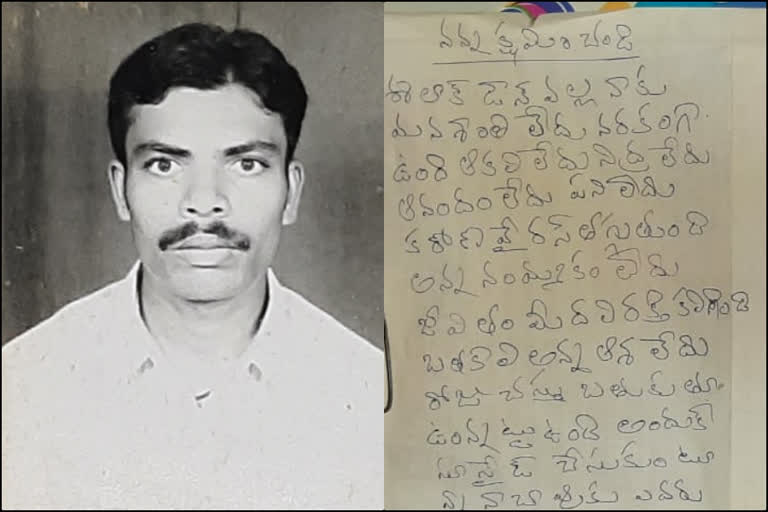 నన్ను క్షమించండి
ఈ లాక్ డౌన్ వల్ల నాకు
మనశాంతి లేదు నరకంగా
ఉంది ఆకలి లేదు నిద్ర లేదు
ఆనందం లేదు పని లేదు
కరోణ వైరస్ తగ్గుతుంది
అన్న నంమ్మకం లేదు
జీవితం మీద విరక్తి కలిగింది
బతకాలి అన్న ఆశ లేదు
రోజు చస్తు బతుకుతూ
ఉంన్నట్టు ఉంది అందుకే
సూసైడ్ చేసుకుంటూ
న్నా నా చావుకు ఎవరు